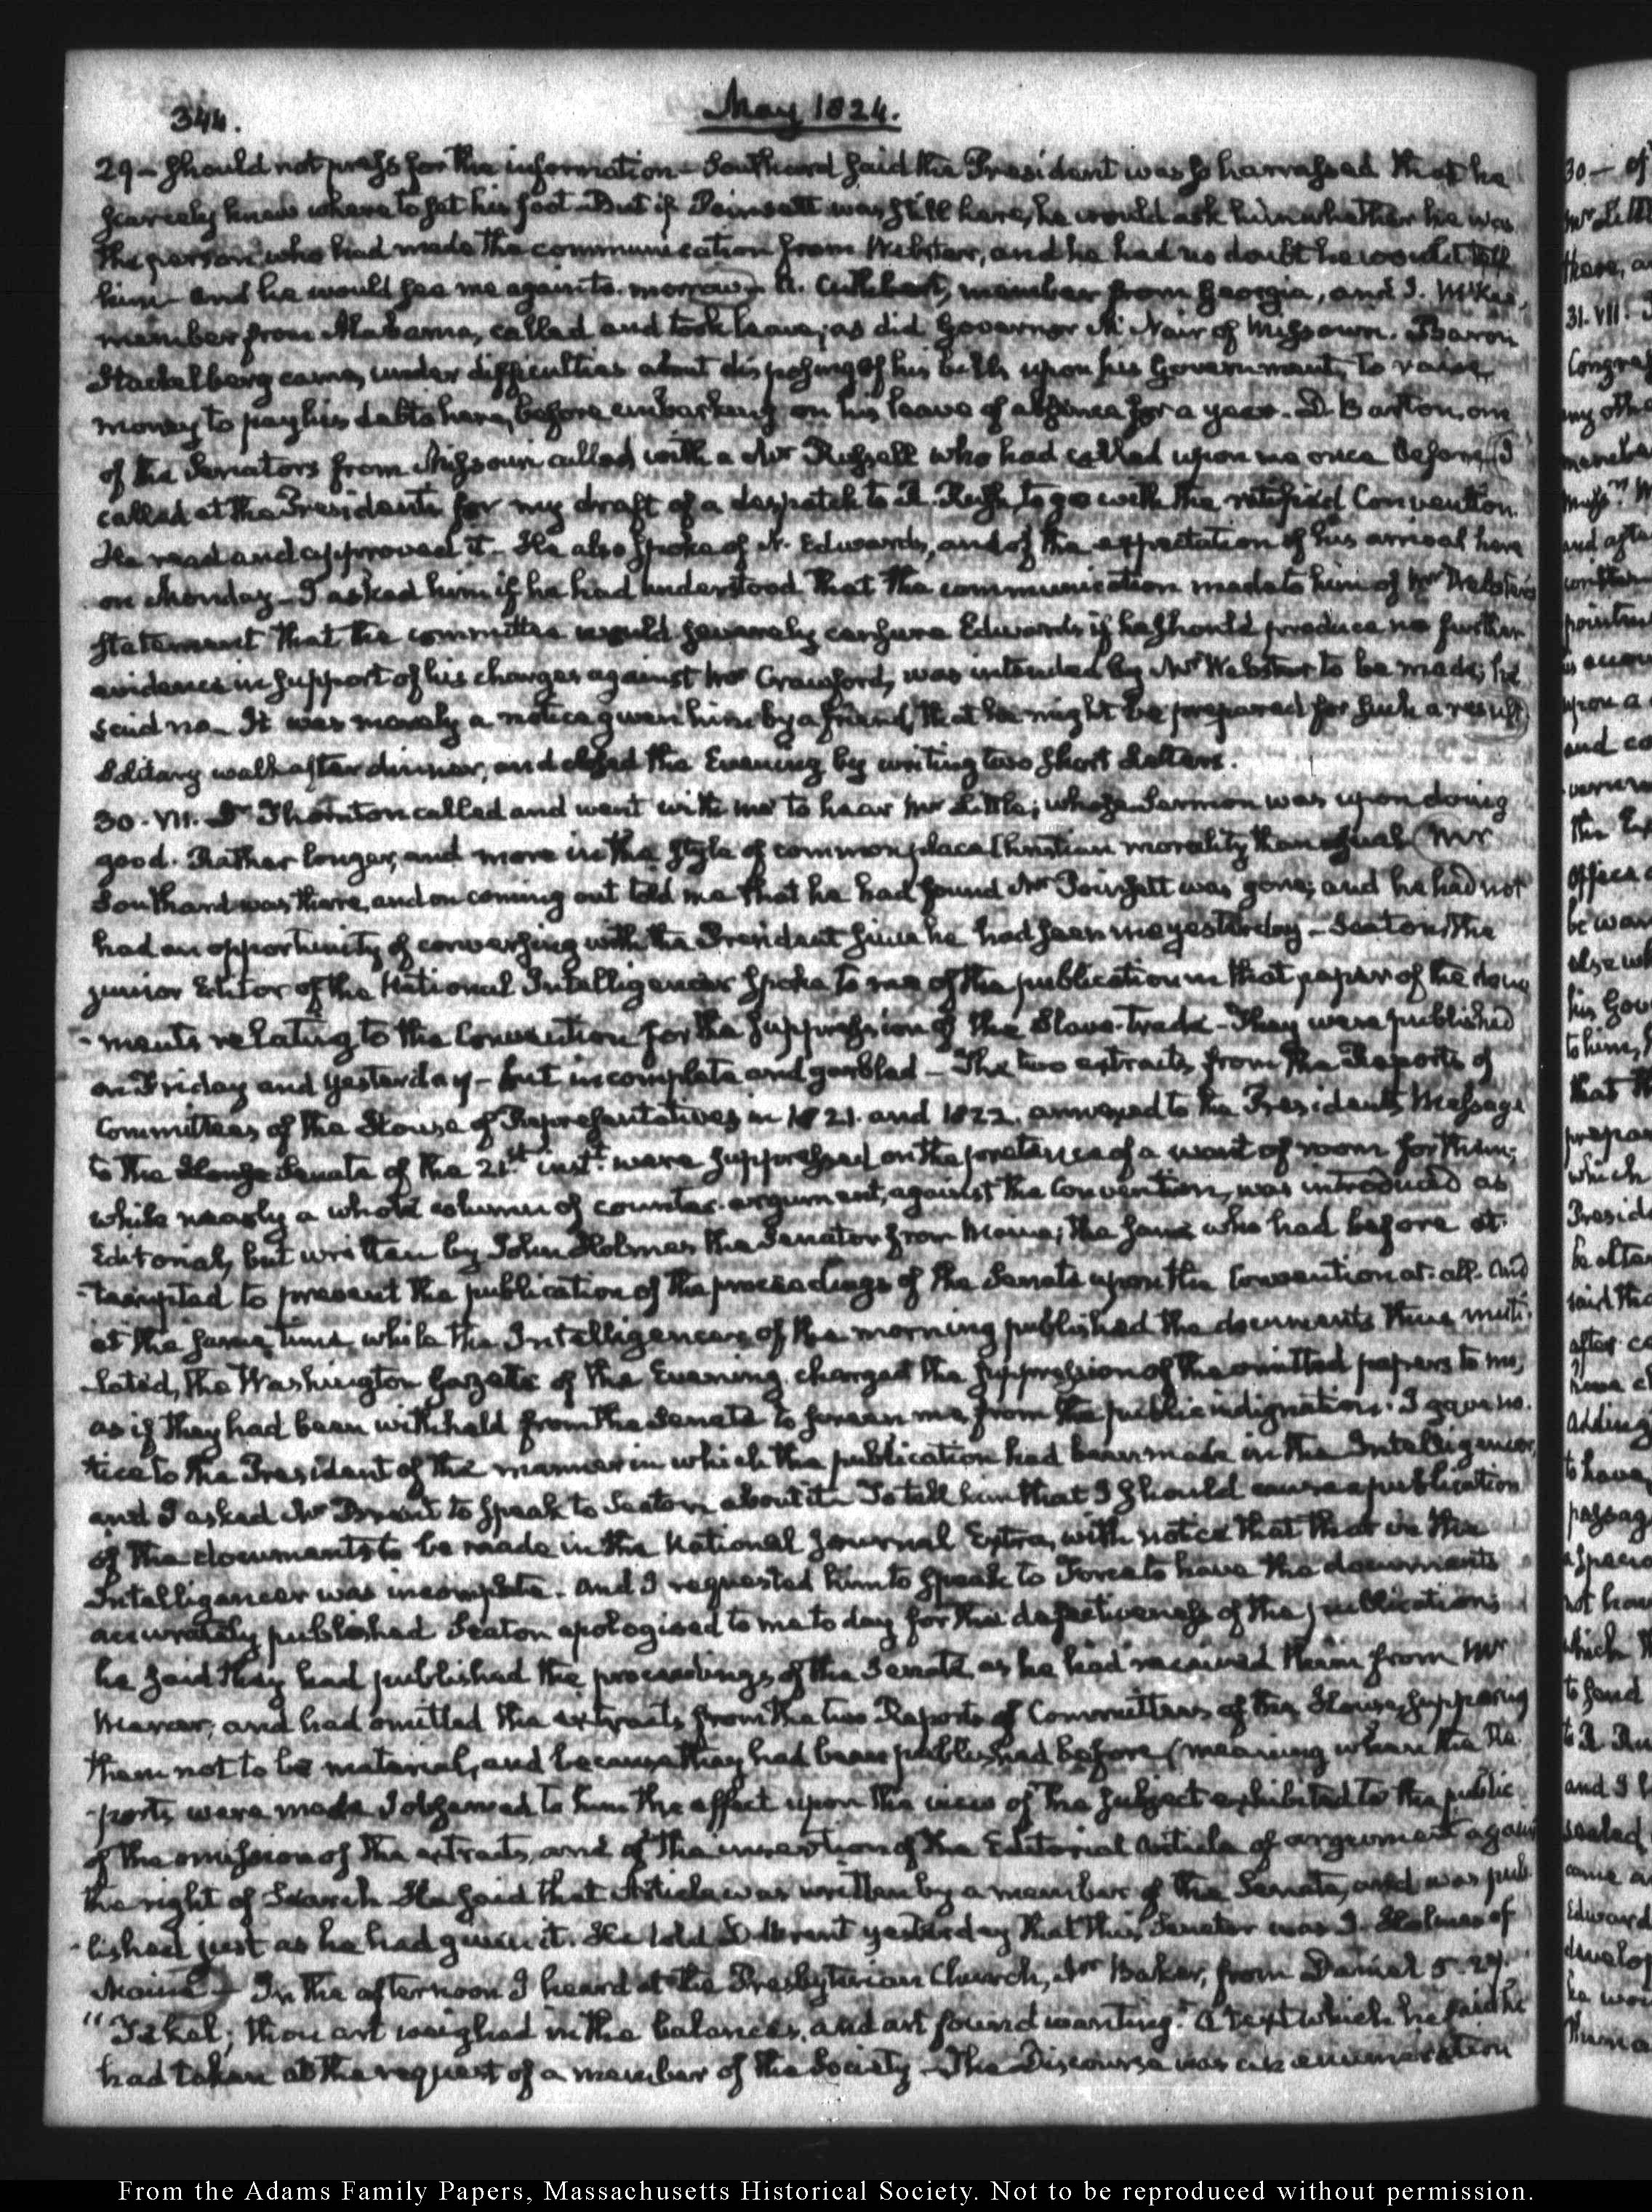 344.
May 1824.
29 – should not press for the information – Southard said the President was so harrassed that he
scarcely knew where to set his foot. But if Poinsett was still here, he would ask him whether he was
the person who had made the communication from Webster, and he had no doubt he would tell
him – and he would see me again to-morrow – A. Cuthbert, member from Georgia, and J. McKee,
member from Alabama, called and took leave; as did Governor McNair of Missouri. Baron
Stackelberg came, under difficulties about disposing of his bills upon his Government, to raise
money to pay his debts here, before embarking on his leave of absence for a year. D. Barton, one
of the Senators from Missouri called, with a Mr Russell who had called upon me once before. I
called at the Presidents for my draft of a despatch to R. Rush, to go with the ratified Convention.
He read and approved it – He also spoke of N. Edwards, and of the expectation of his arrival here
on Monday – I asked him if he had understood that the communication made to him of Mr Webster's
statement that the committee would severely censure Edwards if he should produce no further
evidence in support of his charges against Mr Crawford, was intended by Mr Webster to be made; he
said no – It was merely a notice given him by a friend, that he might be prepared for such a result
Solitary walk after dinner, and closed the Evening by writing two short Letters.
30. VII. Dr Thornton called and went with me to hear Mr Little; whose Sermon was upon doing
good. Rather longer, and more in the style of common place Christian morality than usual. Mr
Southard was there, and on coming out told me that he had found Mr Poinsett was gone; and he had not
had an opportunity of conversing with the President since he had seen me yesterday – Seaton, the
junior Editor of the National Intelligencer spoke to me of the publication in that paper of the docu
-ments relating to the Convention for the suppression of the Slave-trade – They were published
on Friday and yesterday – but incomplete and garbled – The two extracts from the Reports of
Committees of the House of Representatives in 1821. and 1822. annexed to the Presidents Message
to the House Senate of the 21st inst. were suppressed on the pretence of a want of room for them;
while nearly a whole column of counter-argument, against the Convention, was introduced as
Editorial, but written by John Holmes the Senator from Maine; the same who had before at-
-tempted to prevent the publication of the proceedings of the Senate upon the Convention at all. And
at the same time, while the Intelligencer of the morning published the documents thus muti-
-lated, the Washington Gazette of the Evening charged the suppression of the omitted papers to me,
as if they had been withheld from the Senate to screen me from the public indignation. I gave no-
tice to the President of the manner in which the publication had been made in the Intelligencer,
and I asked Mr Brent to speak to Seaton about it – To tell him that I should cause a publication
of the documents to be made in the National Journal Extra, with notice that that in the
Intelligencer was incomplete – and I requested him to speak to Force to have the documents
accurately published Seaton apologised to me to day for the defectiveness of the publication;
he said they had published the proceedings of the Senate as he had received them from Mr
Mercer, and had omitted the extracts from the two Reports of Committees of the House, supposing
them not to be material, and because they had been published before (meaning when the Re-
-ports were made I observed to him the effect upon the view of the subject exhibited to the public
of the omission of the extracts, and of the insertion of the Editorial article of argument against
the right of Search He said that Article was written by a member of the Senate, and was pub-
-lished just as he had given it. He told D. Brent yesterday that this Senator was J. Holmes of
Maine – In the afternoon I heard at the Presbyterian Church, Mr Baker, from Daniel 5. 27.
"Tekel; thou art weighed in the balances, and art found wanting." A text which he said he
had taken at the request of a member of the Society – The Discourse was an enumeration
From the Adams Family Papers, Massachusetts Historical Society. Not to be reproduced without permission.